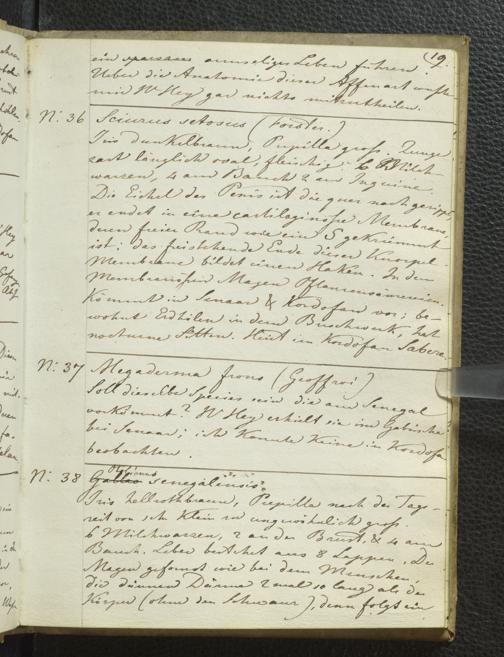 19.
ein armseliges Leben führen.
Ueber die Anatomie dieser Affenart wusste
mir Dr Hey gar nichts mitzutheilen.
N: 36 Sciurus setosus (Forster.)
Iris dunkelbraun, Pupilla gross. Zunge
zart länglich oval, fleischig. 6 Milch-
warzen, 4 am Bauch 2 an Inguine.
Die Eichel des Penis ist die quer nach
er endet in eine cartilaginose Membrane,
deren freier Rand wie ein S gekrümmt
ist; das freistehende Ende dieser Knorpel-
Membrane bildet einen Haken. In dem
Membranösen Magen Pflanzensämereien.
Kömmt in Senaar & Kordofan vor; be-
wohnt Erdhölen in dem Buschwerk, hat
nocturne Sitten. Heist in Kordofan Sabera.
N: 37 Megaderma frons (Geoffroi)
Soll dieselbe Species sein die am Senegal
vorkömmt? Dr Hey erhielt sie im Gebüsche
bei Senaar; ich konnte keine in Kordofa
beobachten.
N: 38 senegalensis.
Iris hellrothbraun, Pupilla nach der Tags-
zeit von sehr klein zu ungewöhnlich gross.
6 Milchwarzen, 2 an der Brust, & 4 am
Bauch. Leber besteht aus 8 Lappen. De
Magen geformt wie bei dem Menschen,
die dünnen Därme 2 mal so lang als de
Körper (ohne den Schwanz), denn folgt ein